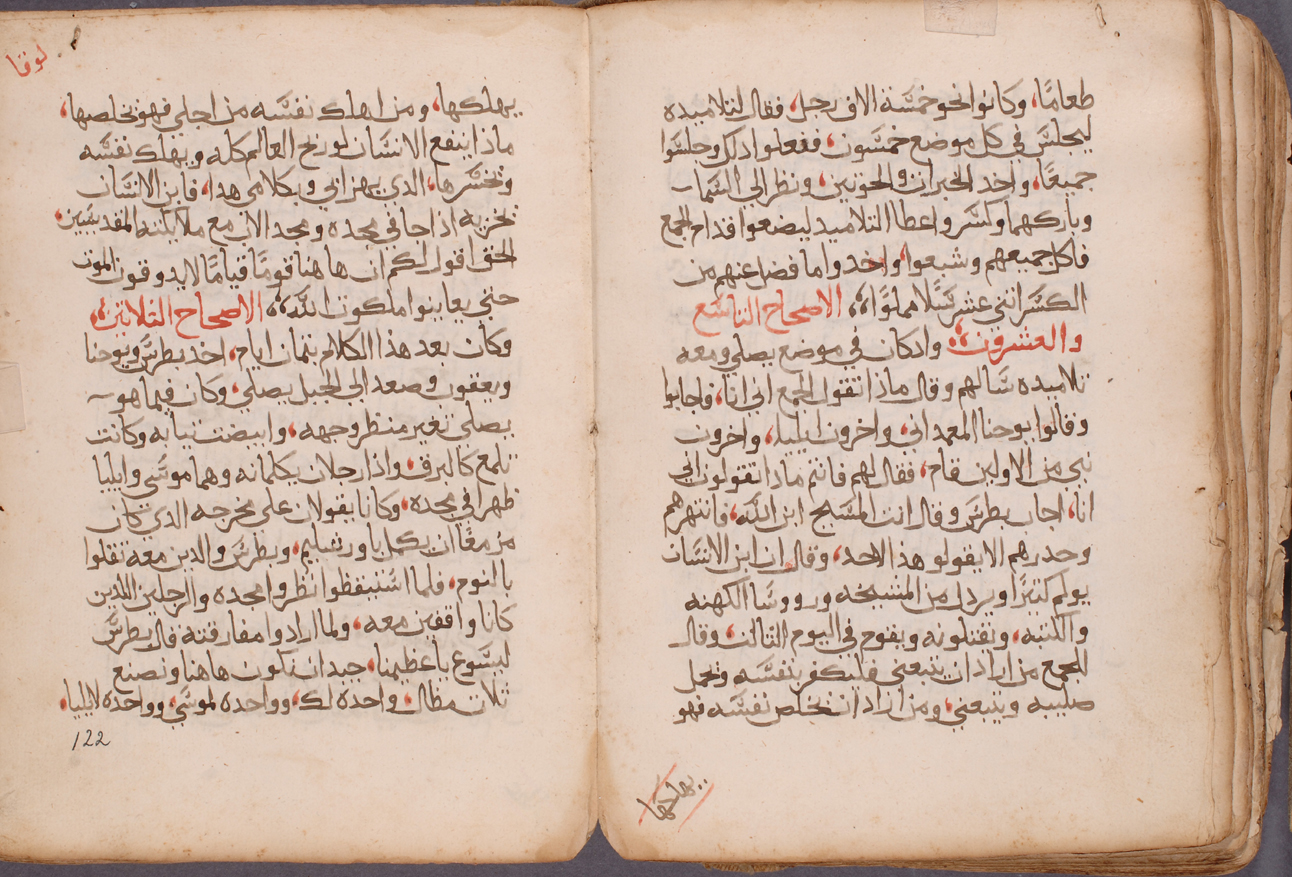 طعامًا، وكانوا نحو خمسة الاف رجل، فقال لتلاميده
ليجلس في كل موضع خمسون، ففعلوا دلك وجلسوا
جميعًا، واخد الخبزات والحوتين، ونظر الي السما
وباركهما وكسر واعطا التلاميد ليضعوا قدام الجمع
فاكل جميعهم وشبعوا، واخدوا ما فضل عنهم من
الكسر اثني عشر سلا مملوًا، الاصحاح التاسع
والعشرون، وادكان في موضع يصلي ومعه
تلاميده سالهم وقال ماذا تقول الجمع اني انا، فاجابوا
وقالوا يوحنا المعمداني، واخرون ايليا، واخرون
نبي من الاولين قام، فقال لهم فانتم مادا تقولون اني
انا، اجاب بطرس وقال انت المسيح ابن الله، فانتهرهم
وحدرهم الا يقولو هذا لاحد، وقال ان ابن الانسان
يولم كثيرًا ويردل من المشيخه ورووسا الكهنه
والكتبه، ويقتلونه ويقوم في اليوم التالت، وقال
للجمع من اراد ان يتبعني فليكفر بنفسه ويحمل
صليبه ويتبعني، ومن اراد ان يخلص نفسه فهو
يهلكها
لوقا
يهلكها، ومن اهلك نفسه من اجلي فهو يخلصها،
ماذا ينفع الانسان لو ربح العالم كله ويهلك نفسه
ويخسرها، الدي يهزا بي وبكلامي هدا، فابن الانسان
يخزيه اذا جا في مجده ومجد الاب مع ملايكته المقدسين،
الحق اقول لكم ان هاهنا قومًا قيامًا لا يدوقون الموت
حتي يعاينوا ملكوت الله، الاصحاح التلاتين،
وكان بعد هذا الكلام بتمان ايام، اخد بطرس ويوحنا
ويعقوب وصعد الي الجبل يصلي، وكان فيما هو
يصلي تغير منظر وجهه، وابيضت تيابه وكانت
تلمع كالبرق، واذا رجلان يكلمانه وهما موسي وايليا
ظهرا في مجده، وكانا يقولان علي مخرجه الدي كان
مزمعًا ان يكمل باورشليم، وبطرس والدين معه تقلوا
بالنوم، فلما استيقظوا نظروا مجده والرجلين اللدين
كانا واقفين معه، ولما ارادوا مفارقته قال بطرس
ليسوع يا عظيمنا، جيد ان نكون هاهنا ونصنع
تلات مظال، واحده لك، وواحده لموسي، وواحده لايليا،
122